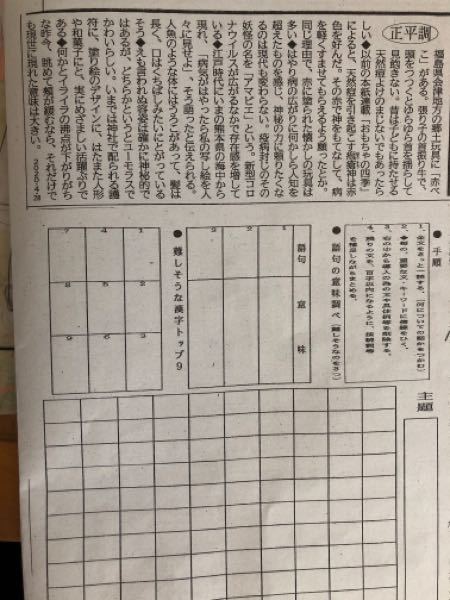 正平調
福島県会津地方の郷土玩具に「赤べ
こ」がある。張り子の首振り牛で、
頭をつつくとゆらゆら首を揺らして
見飽きない。昔は子どもに持たせる
天然痘よけのまじないでもあったら
しい◆以前の本紙連載「おもちゃの四季」
によると、天然痘を引き起こす疱瘡神は赤
色を好んだ。その赤で神をもてなして、病
を軽くすませてもらえるよう願ったとか。
同じ理由で、赤に塗られた懐かしの玩具は
多い◆はやり病の広がりに何かしら人知を
超えたものを感じ、神秘の力に頼りたくな
るのは現代も変わらない。疫病封じのその
妖怪の名を「アマビエ」という。新型コロ
ナウイルスが広がるなかで存在感を増して
いる◆江戸時代にいまの熊本県の海中から
現れ、「病気がはやったら私の写し絵を人
々に見せよ」、そう語ったと伝えられる。
人魚のような体にはうろこがあって、髪は
長く、口はくちばしみたいにとがっている
そう◆えも言われぬ容姿は確かに神秘的で
はあるが、どちらかというとユーモラスで
かわいらしい。いまでは神社で配られる護
符に、塗り絵のデザインに、はたまた人形
や和菓子にと、実にめざましい活躍ぶりで
ある◆何かとイライラの沸点が下がりがち
な昨今、眺めて頰が緩むなら、それだけで
も現世に現れた意味は大きい。 2020・4・28
●手順
1、全文をさっと一読する。（何についての話かをつかむ）
2、◆毎の、重要な文・キーワードに傍線をひく。
3、右の中から導入の為の文や具体例等を削除する。
4、残りの文を、百字以内になるように、接続詞等
を補足しながらまとめる。
●語句の意味調べ（難しそうなのを3つ）
語句 意味
1
2
3
●難しそうな漢字トップ9
1 2 3
4 5 6
7 8 9
主題